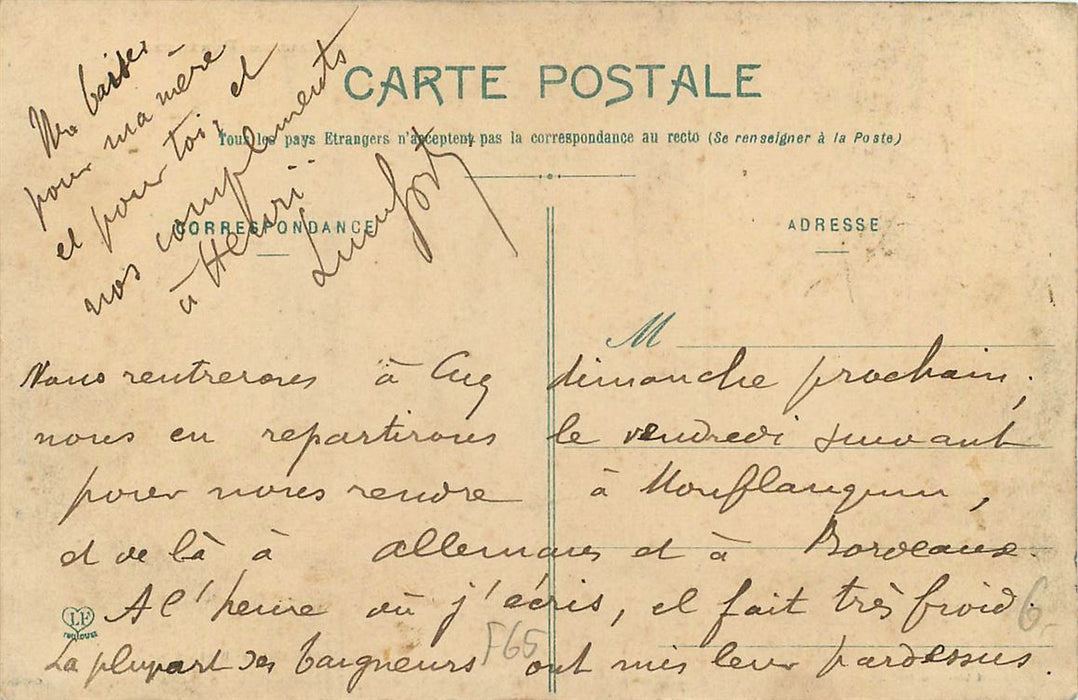 CARTE POSTALE
Tous les pays Etrangers n'acceptent pas la correspondance au recto (Se renseigner à la Poste)
CORRESPONDANCE
ADRESSE
M
baiser
pour ma mère
et pour toi, et
nos compliments
à Henri
Nous rentrerons à dimanche prochain;
nous en repartirons le vendredi suivant
pour nous rendre à Monflanquin,
et de là à Allemans et à Bordeaux.
A l'heure où j'écris, il fait très froid.
La plupart des baigneurs ont mis leur pardessus.
LF
Toulouse
F65
6